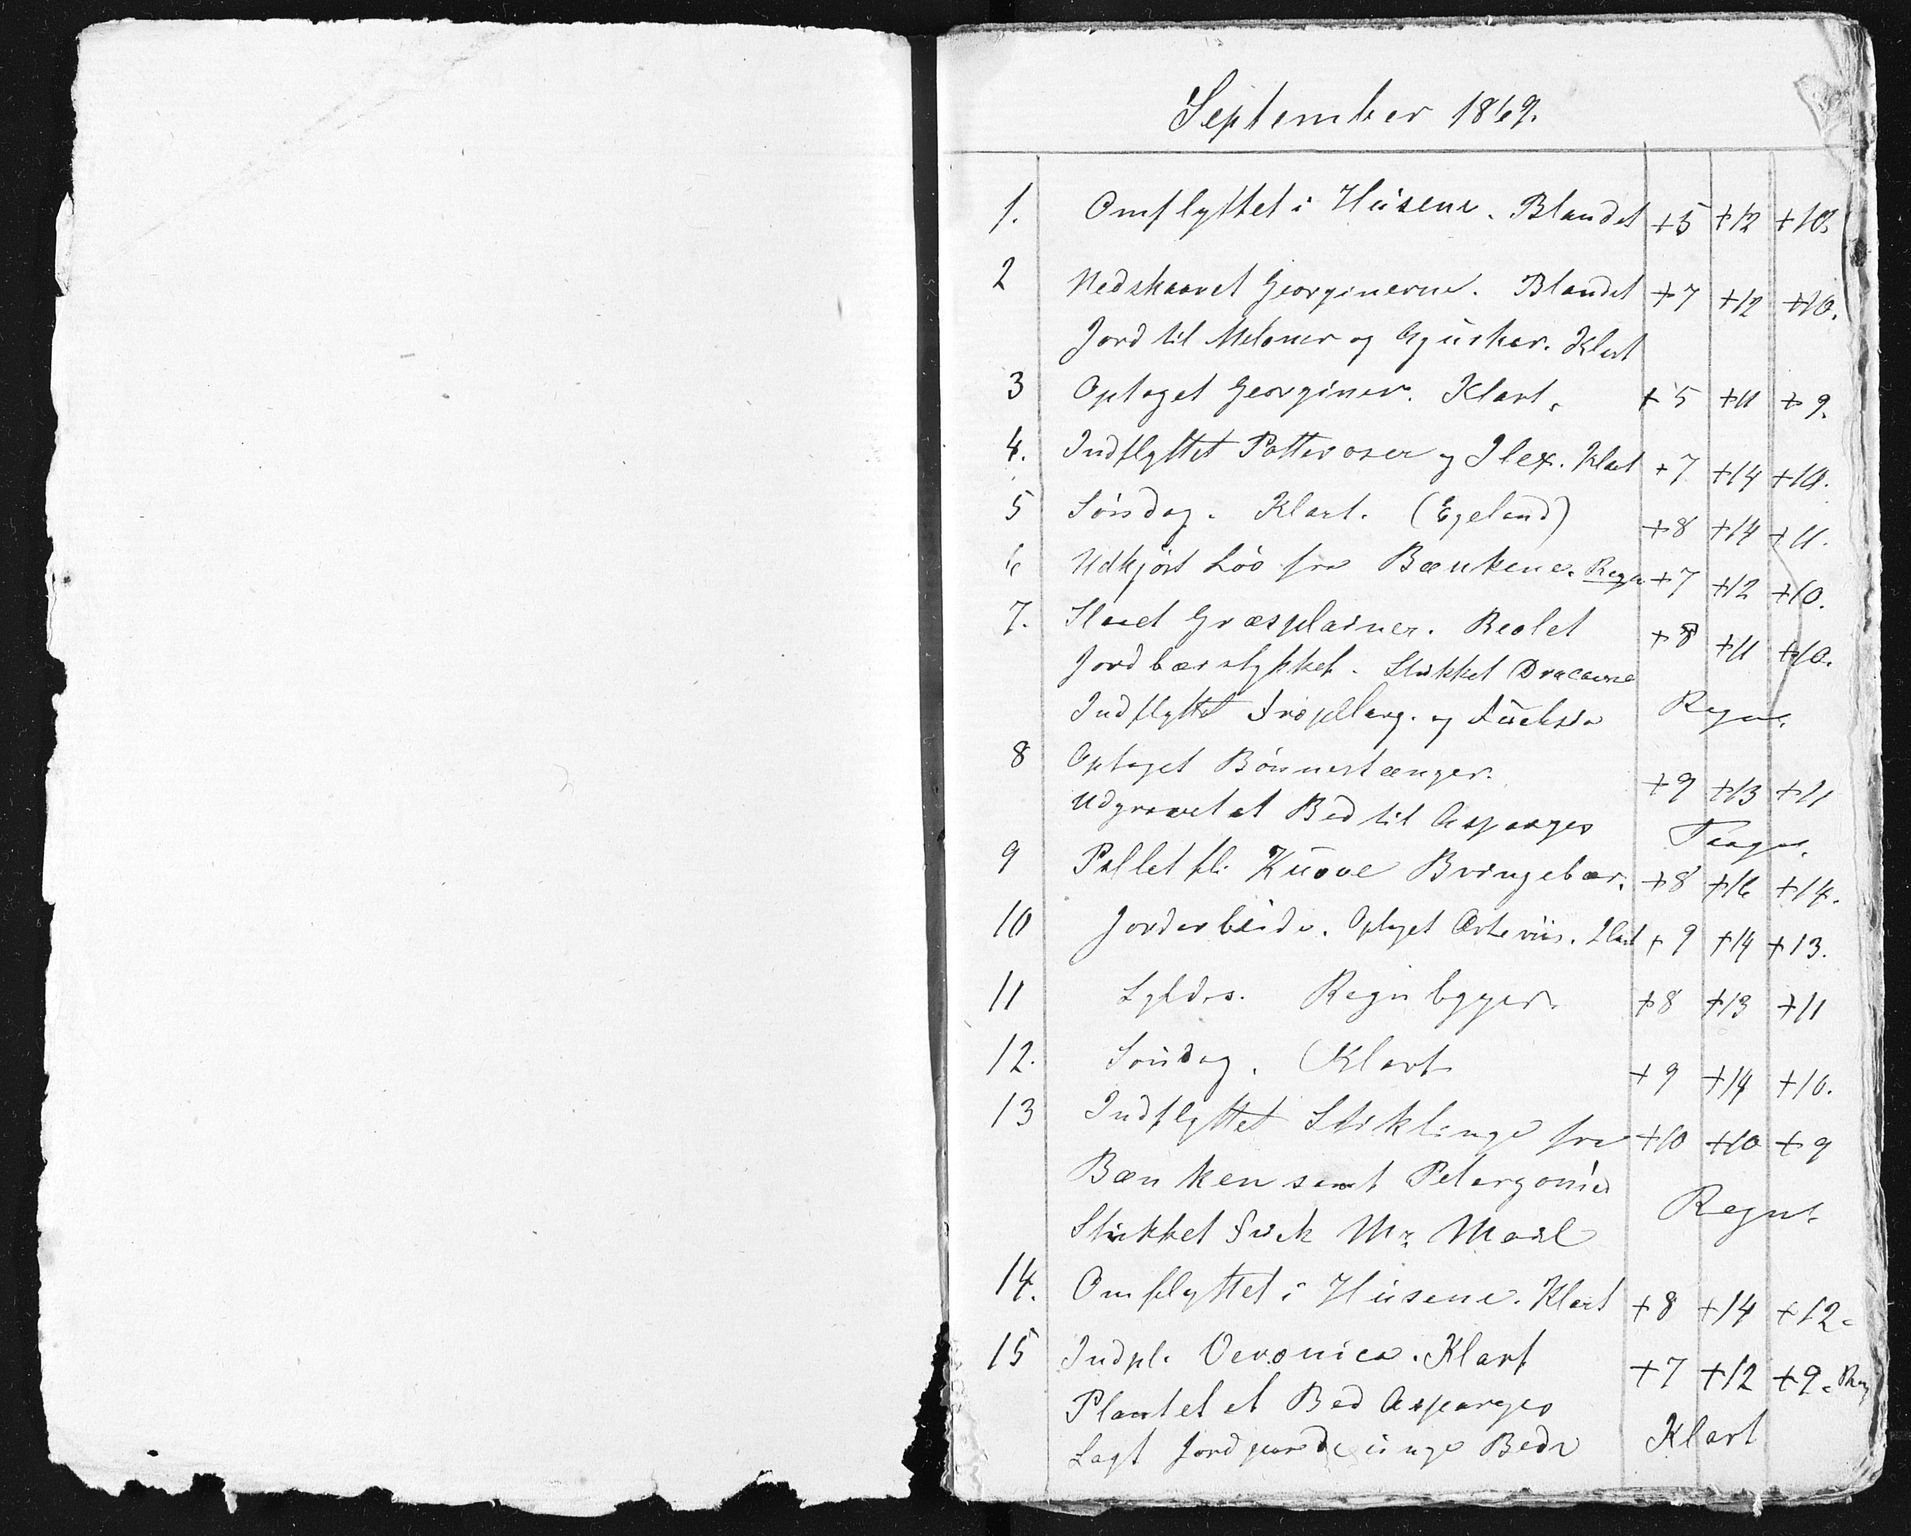 September 1869.
1. Omflyttet i Húsene. Blandet +5 +12 +10.
2 Nedskaaret Georginerne. Blandet +7 +12 +10.
Jord til Meloner og Agúrker. Klart
3 Optaget Georginer. Klart. +5 +11 +9.
4. Indflyttet Potteroser og Ilex. Klart +7 +14 +10.
5 Søndag. Klart. (Egeland) +8 +14 +11.
6 Udkjørt Løv fra Bænkene. Regn +7 +12 +10.
7. Slaaet Græsplainer. Reolet +8 +11 +10.
Jordbærstykket. Stikket Dracaena
Indflyttet og Fúchsia Regn.
8 Optaget Bønnestænger. +9 +13 +11
Udgravet et Bed til Asparges
9 Pillet fl. Kúrve Bringebær. +8 +16 +14.
10 Jordarbeide. Optaget Erteriis. Klart +9 +14 +13.
11 Regnbyger. +8 +13 +11
12. Søndag. Klart +9 +14 +10.
13 Indflyttet Stiklinge fra +10 +10 +9
Bænken samt Pelargonier
Stikket Fúch Regn.
14. Omflyttet i Húsene. Klart +8 +14 +12.
15 Indpl. Veronica. Klart +7 +12 +9. Reg
Plantet et Bed Asparges
Lagt Jord paa de únge Bede Klart